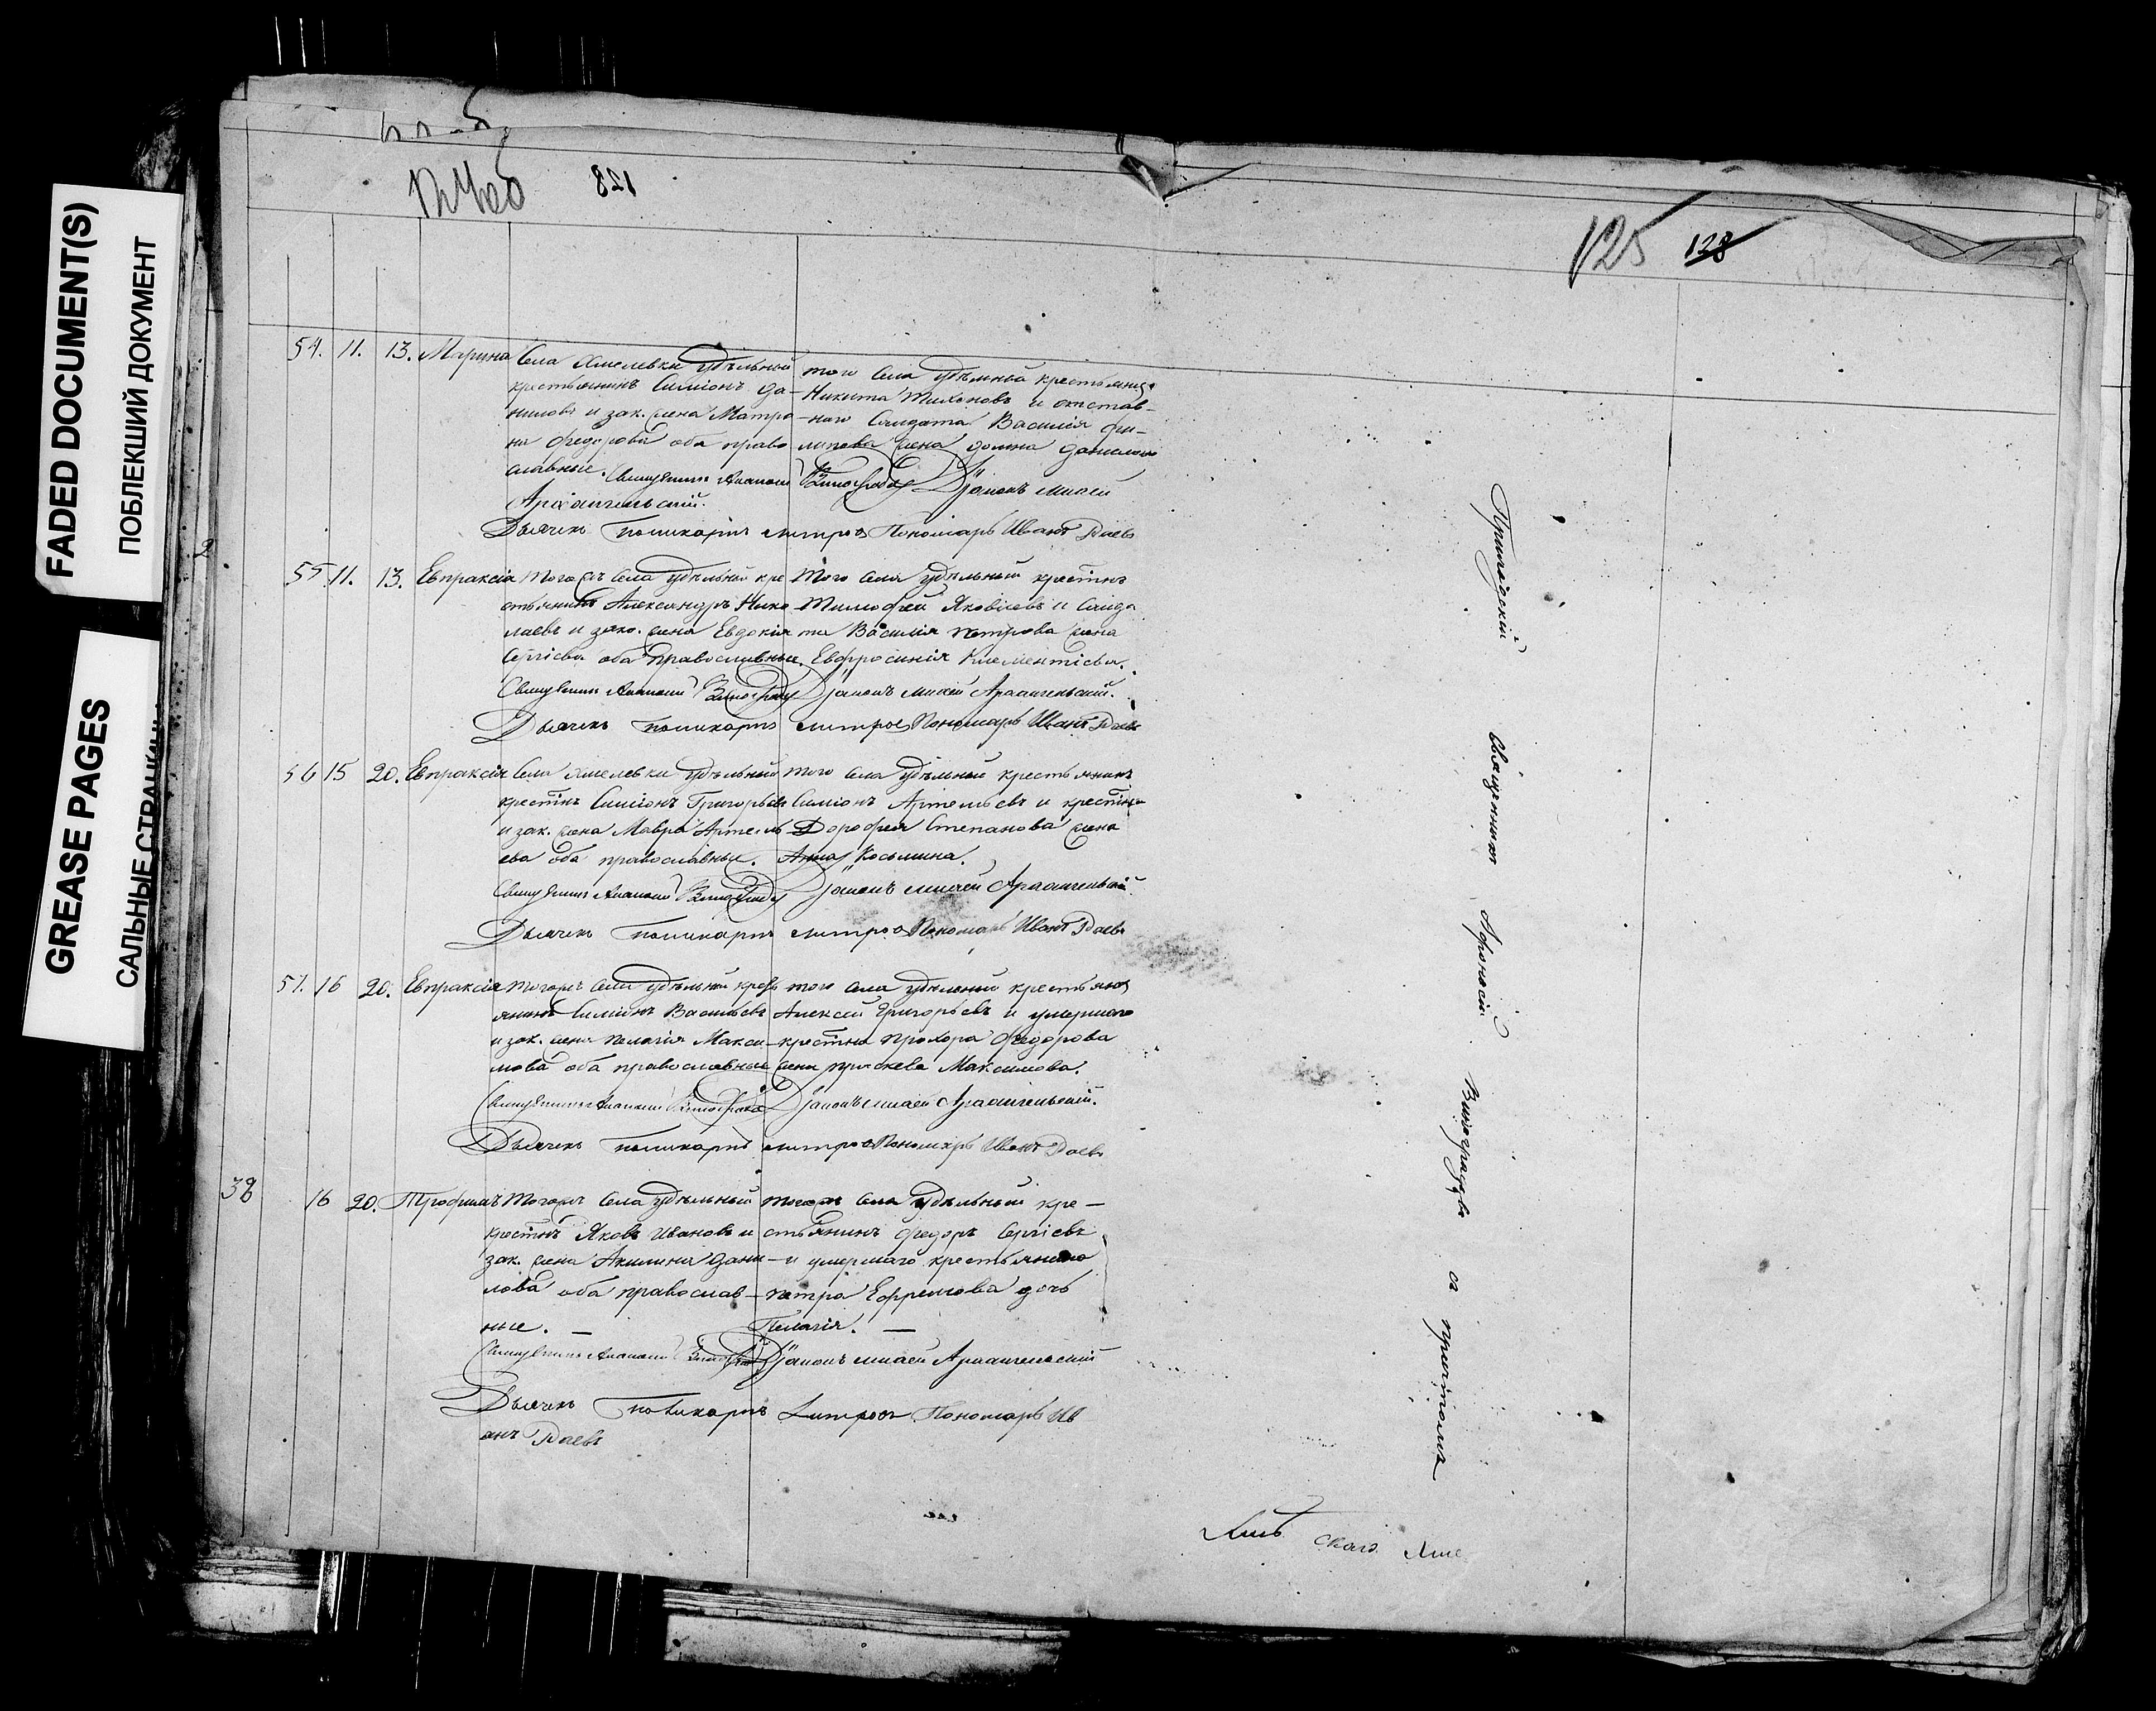 FADED DOCUMENT(S)
ПОБЛЕКШИЙ ДОКУМЕНТ
GREASE PAGES
САЛЬНЫЕ СТРАНИЦЫ
128
125 128
54. 11. 13. Марина Села Хмелевки удѣльный
крестьянинъ Симіонъ Да-
ниловъ и зак. жена Матро-
на Федорова оба право
славные.
того села удѣльный крестьянинъ
Никита Тихоновъ и отстав-
наго Солдата Василія Фи-
липова жена Домна Данилова
Священникъ Афанасій Виноградовъ Діаконъ Михей
Архангельскій.
Дьячекъ Поликарпъ Митровъ Пономарь Иванъ Раевъ
55. 11. 13. Евпраксія Тогожъ села удѣльный кре
стьянинъ Александръ Нико
лаевъ и зако. жена Евдокія
Сергіева оба православные.
Того села удѣльный крестнъ
Тимофей Яковлевъ и Солда
та Василія Петрова жена
Евфросинія Климентіева.
Священникъ Афанасій Виноградовъ Діаконъ Михей Архангельскій.
Дьячекъ Поликарпъ Митровъ Пономарь Иванъ Раевъ
56 15 20. Евпраксія Села Хмелевки удѣльный
крестнъ Симіонъ Григорьевъ
и зак. жена Мавра Артемь
ева оба православные.
того села удѣльный крестьянинъ
Симіонъ Артемьевъ и крестнна
Дорофея Степанова жена
Анна Косьмина.
Священникъ Афанасій Виноградовъ Діаконъ Михей Архангельскій
Дьячекъ Поликарпъ Митровъ Пономарь Иванъ Раевъ
57. 16 20. Евпраксія Тогожъ села удѣльный кресть
янинъ Симіонъ Васильевъ
и зак. жена Пелагія Макси-
мова оба православные
того села удѣльный крестьянинъ
Алексѣй Григорьевъ и умершаго
крестна Прохора Федорова
жена Праскева Максимова.
Священникъ Афанасій Виноградовъ Діаконъ Михей Архангельскій.
Дьячекъ Поликарпъ Митровъ Пономарь Иванъ Раевъ
38 16 20. Трофимъ Тогожъ села удѣльный
крестнъ Яковъ Ивановъ и
зак. жена Акилина Дани-
лова оба православ-
ные. —
тогожъ села удѣльный кре-
стьянинъ Федоръ Сергіевъ
и умершаго крестьянина
Петра Ефремова дочь
Пелагія. —
Священникъ Афанасій Виноградовъ Діаконъ Михей Архангельскій
Дьячекъ Поликарпъ Митровъ Пономарь Ив
анъ Раевъ
Приходскій Священникъ Афонасій Виноградовъ съ причтомъ
скаго Хме